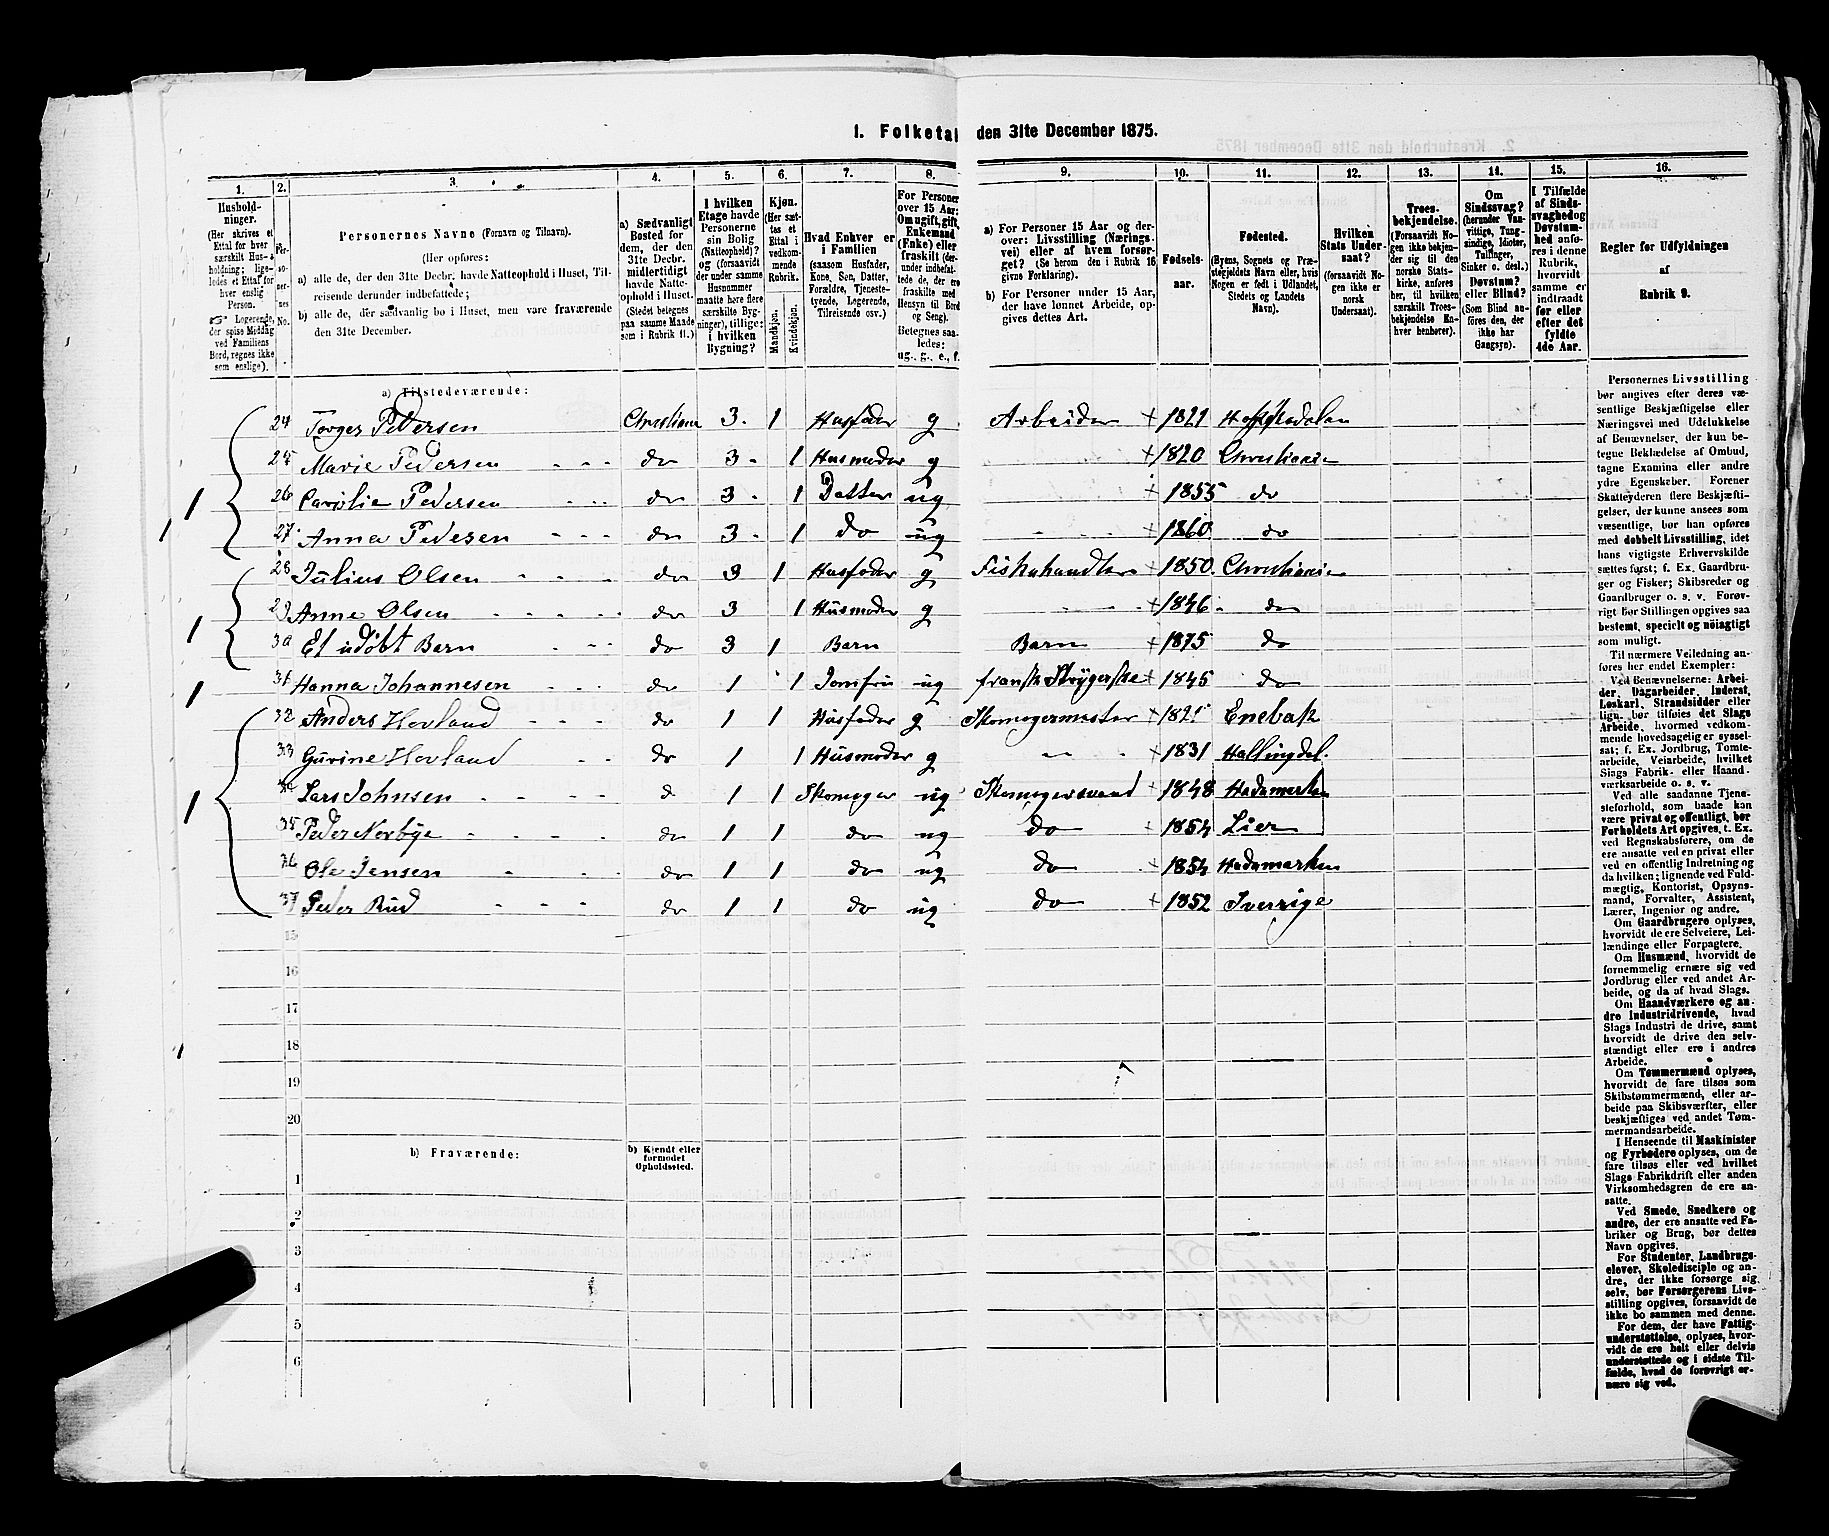 1. Folketal den 31te December 1875.
1. 2. 3. 4. 5. 6. 7. 8. 9. 10. 11. 12. 13. 14. 15. 16.
Hushold-
ninger.
(Her skrives et
Ettal for hver
særskilt Hus-
holdning; lige-
ledes et Ettal for
hver enslig
Person.
☞ Logerende,
der spise Middag
ved Familiens
Bord, regnes ikke
som enslige).
Per-
so-
ner-
nes
No.
Personernes Navne (Fornavn og Tilnavn).
(Her opføres:
a) alle de, der den 31te Decbr. havde Natteophold i Huset, Til-
reisende derunder indbefattede;
b) alle de, der sædvanlig bo i Huset, men vare fraværende
den 31te December.
a) Sædvanligt
Bosted for
dem, der den
31te Decbr.
midlertidigt
havde Natte-
ophold i Huset.
(Stedet betegnes
paa samme Maade
som i Rubrik 11.)
I hvilken
Etage havde
Personerne
sin Bolig
(Natteophold)?
og (forsaavidt
der under samme
Husnummer
maatte høre flere
særskilte Byg-
ninger), tillige:
i hvilken
Bygning?
Kjøn.
(Her sæt-
tes et
Ettal i
vedkom-
mende
Rubrik.
Mandkjøn.
Kvindekjøn.
Hvad Enhver er
i Familien
(saasom Husfader,
Kone, Søn, Datter,
Forældre, Tjeneste-
tyende, Logerende,
Tilreisende osv.)
For Personer
over 15 Aar:
Om ugift, gift,
Enkemand
(Enke) eller
fraskilt (der-
under indbefat-
tede de, der ere
fraskilte med
Hensyn til Bord
og Seng).
Betegnes saa-
ledes:
ug., g., e., f.
a) For Personer 15 Aar og der-
over: Livsstilling (Nærings-
vei) eller af hvem forsør-
get? (Se herom den i Rubrik 16
givne Forklaring).
b) For Personer under 15 Aar,
der have lønnet Arbeide, op-
gives dettes Art.
Fødsels-
aar.
Fødested.
(Byens, Sognets og Præ-
stegjeldets Navn eller, hvis
Nogen er født i Udlandet,
Stedets og Landets
Navn).
Hvilken
Stats Under-
saat?
(forsaavidt No-
gen ikke er
norsk
Undersaat).
Troes-
bekjendelse.
(Forsaavidt No-
gen ikke bekjen-
der sig til den
norske Stats-
kirke, anføres
her, til hvilken
særskilt Troes-
bekjendelse En-
hver henhører).
Om
Sindssvag?
(herunder Van-
vittige, Tung-
sindige, Idioter,
Tullinger,
Sinker o. desl.)
Døvstum?
eller Blind?
(Som Blind an-
føres den, der
ikke har
Gangsyn).
I Tilfælde
af Sinds-
svaghed og
Døvstum-
hed anfø-
res i denne
Rubrik,
hvorvidt
samme er
indtraadt
før eller
efter det
fyldte
4de Aar.
Regler for Udfyldningen
af
Rubrik 9.
a) Tilstedeværende:
24 Torger Pedersen Christiania 3 1 Husfader g Arbeider 1821
25 Marie Pedersen do 3 1 Husmoder g 1820 Christiania
1 26 Carolie Pedersen do 3 1 Datter ug 1855 do
1 27 Anna Pedesen do 3 1 do ug 1860 do
28 Julius Olsen do 3 1 Husfader g Fiskehandler 1850 Christiania
1 29 Anne Olsen do 3 1 Husmoder g 1846 do
30 Et udøbt Barn do 3 1 Barn Barn 1875 do
1 31 Hanna Johannesen do 1 1 Jomfru ug fransk Strygerske 1845 do
32 Anders Hovland do 1 1 Husfader g Skomagermester 1821 Enebak
33 Gurine Hovland do 1 1 Husmoder g 1831 Hallingdal
1 34 Lars Johnsen do 1 1 Skomager ug Skomagersvend 1848 Hedemarken
35 Peder Norbye do 1 1 do ug do 1854 Lier
36 Ole Jensen do 1 1 do ug do 1854 Hedemarken
37 Peder Rud do 1 1 do ug do 1852 Sverrige
15
16
17
18
19
20
b) Fraværende:
b) Kjendt eller
formodet
Opholdssted.
1
2
3
4
5
6
Personernes Livsstilling
bør angives efter deres væ-
sentlige Beskjæftigelse eller
Næringsvei med Udelukkelse
af Benævnelser, der kun be-
tegne Beklædelse af Ombud,
tagne Examina eller andre
ydre Egenskaber. Forener
Skatteyderen flere Beskjæfti-
gelser, der kunne ansees som
væsentlige, bør han opføres
med dobbelt Livsstilling, idet
hans vigtigste Erhvervskilde
sættes først; f. Ex. Gaardbru-
ger og Fisker; Skibsreder og
Gaardbruger o. s. v. Forøv-
rigt bør Stillingen opgives saa
bestemt, specielt og nøiagtigt
som muligt.
Til nærmere Veiledning an-
føres her endel Exempler:
Ved Benævnelserne: Arbei-
der, Dagarbeider, Inderst,
Løskarl, Strandsidder eller
lign. bør tilføies det Slags
Arbeide, hvormed vedkom-
mende hovedsagelig er syssel-
sat; f. Ex. Jordbrug, Tomte-
arbeide, Veiarbeide, hvilket
Slags Fabrik- eller Haand-
værksarbeide o. s. v.
Ved alle saadanne Tjene-
steforhold, som baade kan
være privat og offentligt, bør
Forholdets Art opgives, t. Ex.
ved Regnskabsførere, om de
ere ansatte ved en privat eller
ved en offentlig Indretning og
da hvilken; lignende ved Fuld-
mægtig, Kontorist, Opsyns-
mand, Forvalter, Assistent,
Lærer, Ingeniør og andre.
Om Gaardbrugere oplyses,
hvorvidt de ere Selveiere, Lei-
lændinge eller Forpagtere.
Om Husmænd, hvorvidt de
fornemmelig ernære sig ved
Jordbrug eller ved andet Ar-
beide, og da af hvad Slags.
Om Haandværkere og an-
dre Industridrivende, hvad
Slags Industri de drive, samt
hvorvidt de drive den selv-
stændigt eller ere i andres
Arbeide.
Om Tømmermænd oplyses,
hvorvidt de fare tilsøs som
Skibstømmermænd, eller ar-
beide paa Skibsværfter, eller
beskjæftiges ved andet Tøm-
mermandsarbeide.
I Henseende til Maskinister
og Fyrbødere oplyses, om de
fare tilsøs eller ved hvilket
Slags Fabrikdrift eller anden
Virksomhedsgren de ere an-
satte.
Ved Smede, Snedkere og
andre, der ere ansatte ved Fa-
briker og Brug, bør dettes
Navn opgives.
For Studenter, Landbrugs-
elever, Skoledisciple og an-
dre, der ikke forsørge sig
selv, bør Forsørgerens Livs-
stilling opgives, forsaavidt de
ikke bo sammen med denne.
For dem, der have Fattig-
understøttelse, oplyses, hvor-
vidt de ere helt eller delvis
understøttede og i sidste Til-
fælde, hvad de forøvrigt er-
nære sig ved.